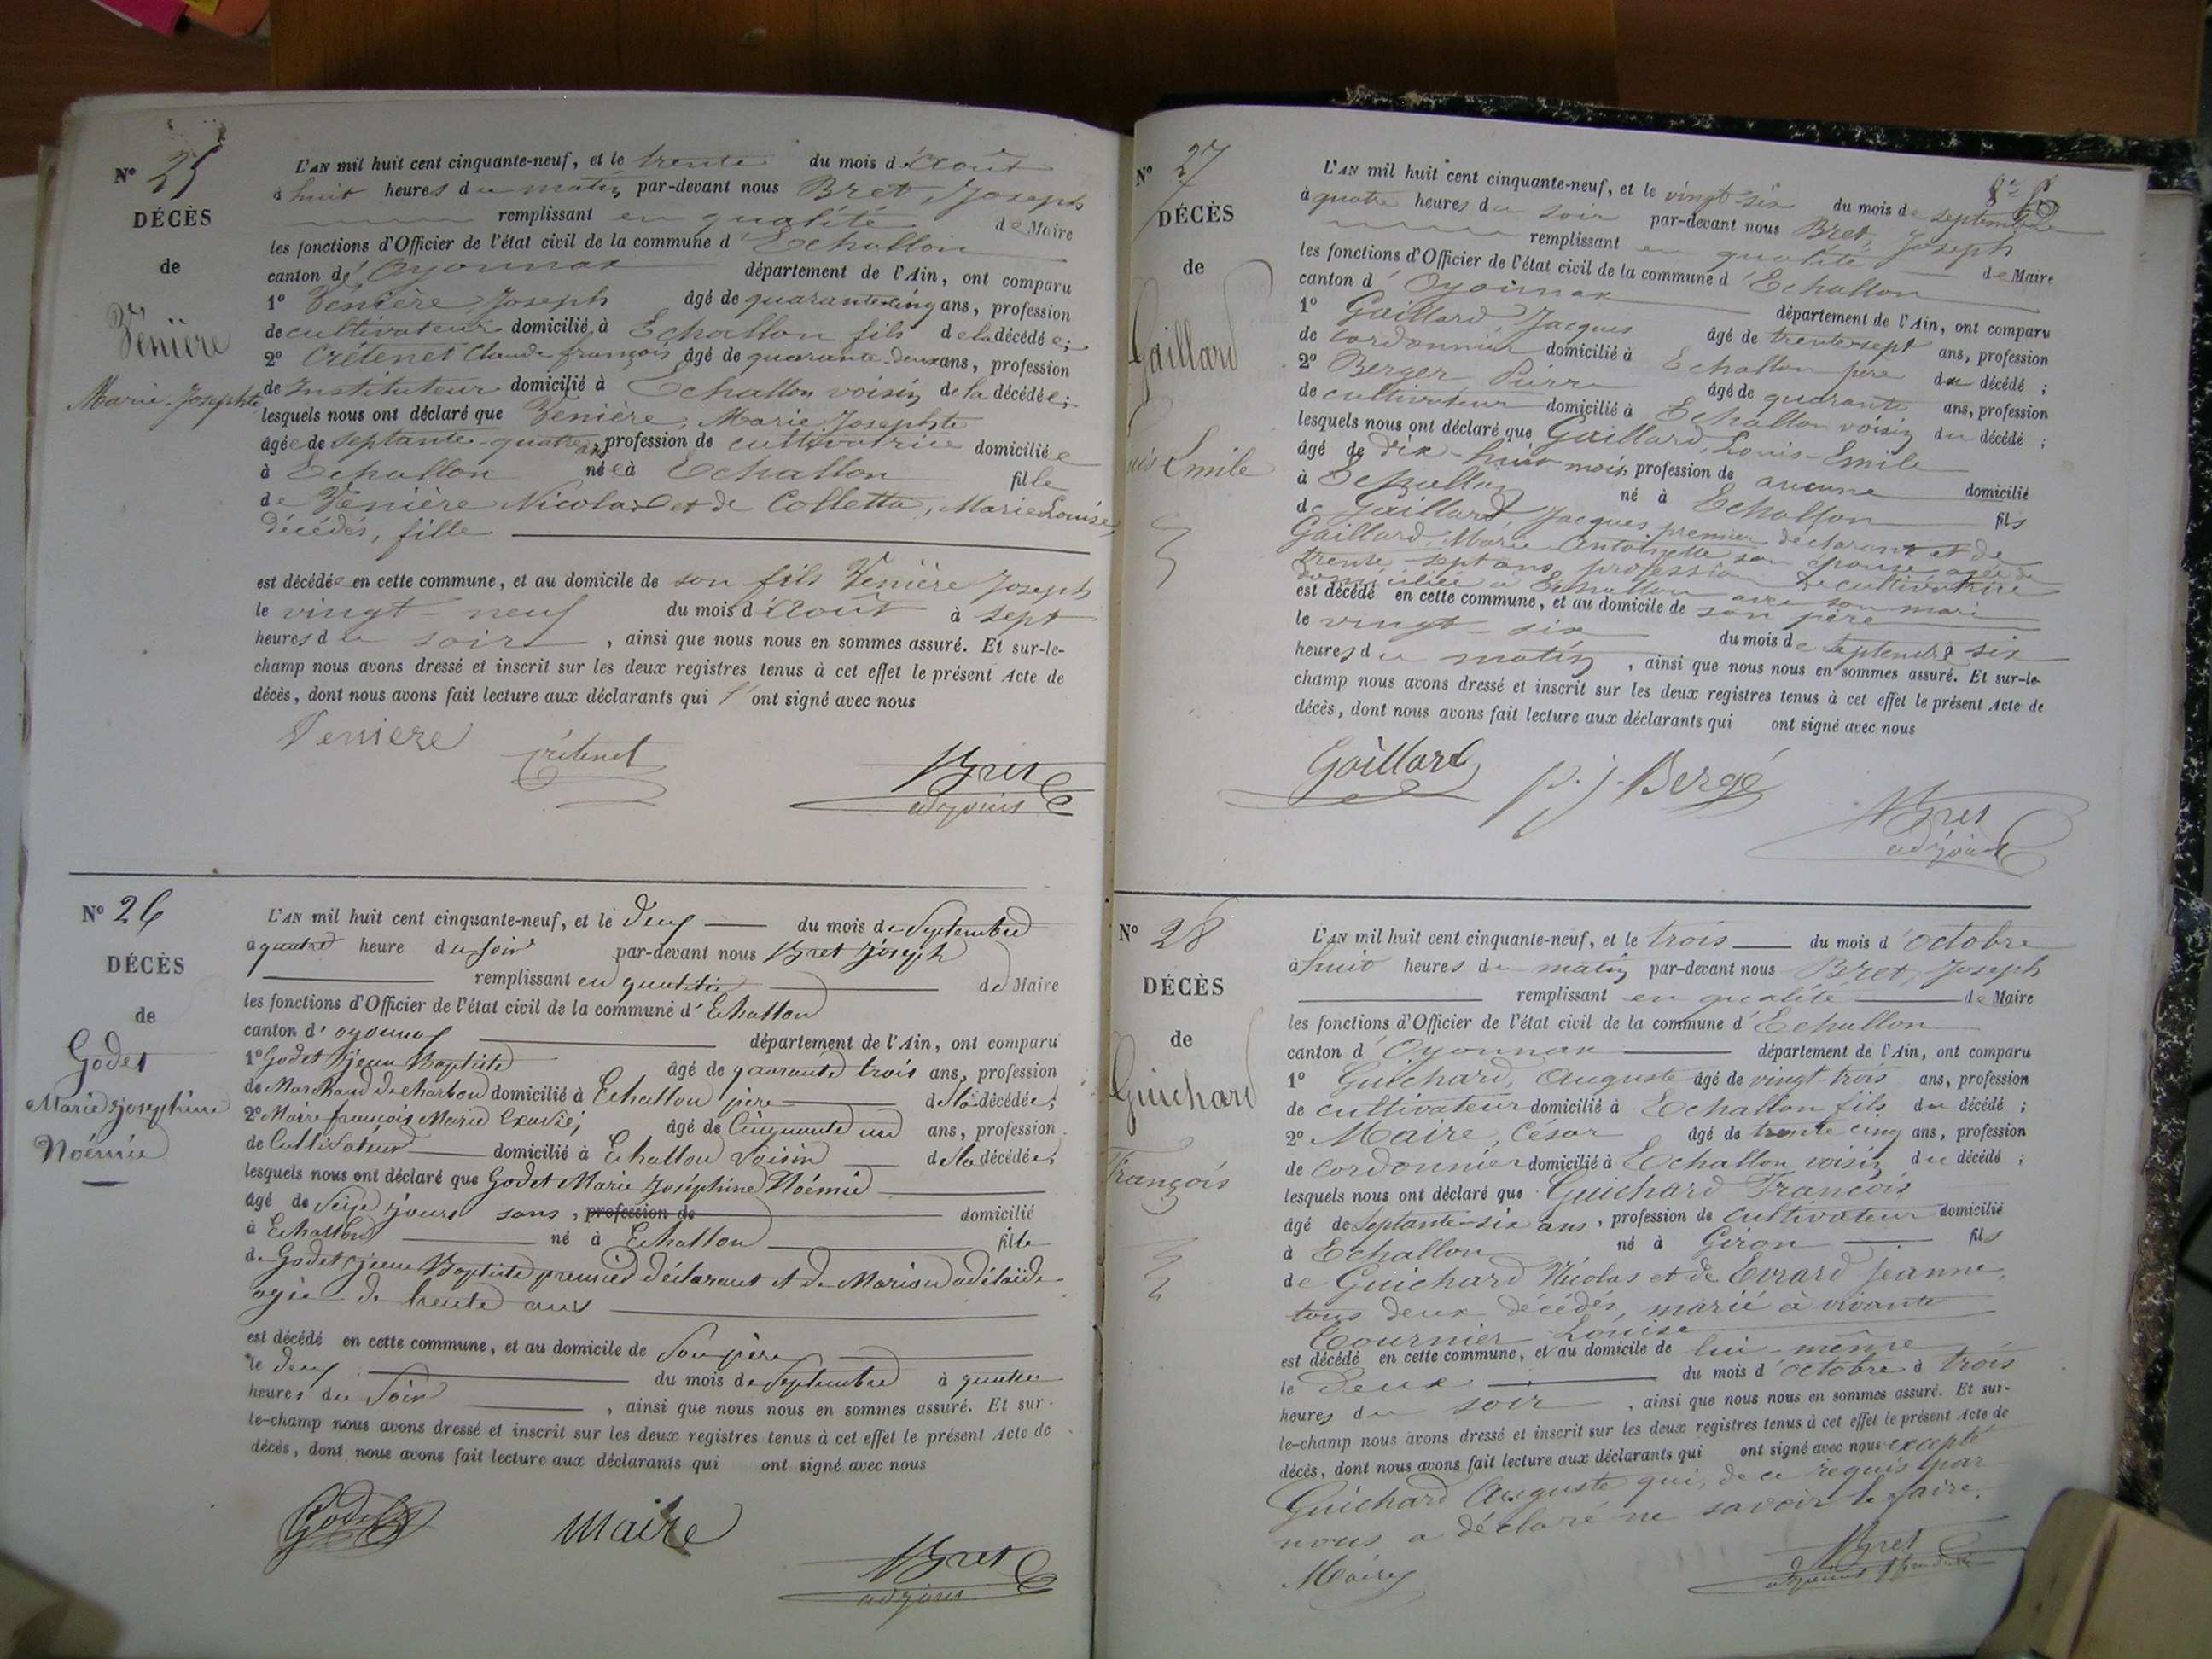 N° 25
DÉCÈS
de
Vénière
Marie-Josephte
L'AN mil huit cent cinquante-neuf, et le trente du mois d'Août
à huit heures du matin par-devant nous Bret, Joseph
remplissant en qualité de Maire
les fonctions d'Officier de l'état civil de la commune d'Echallon
canton d'Oyonnax département de l'Ain, ont comparu
1° Vénière Joseph âgé de quarante-cinq ans, profession
de cultivateur domicilié à Echallon fils de la décédée;
2° Crétenet Claude françois âgé de quarante-deux ans, profession
de Instituteur domicilié à Echallon voisin de la décédée;
lesquels nous ont déclaré que Vénière, Marie Josephte
âgée de septante-quatre ans, profession de cultivatrice domiciliée
à Echallon née à Echallon fille
de Vénière Nicolas et de Colletta, Marie Louise,
décédés, fille
est décédée en cette commune, et au domicile de son fils Vénière Joseph
le vingt-neuf du mois d'Août à sept
heures du soir, ainsi que nous nous en sommes assuré. Et sur-le-
champ nous avons dressé et inscrit sur les deux registres tenus à cet effet le présent Acte de
décès, dont nous avons fait lecture aux déclarants qui l'ont signé avec nous
Veniere Crétenet Bret
adjoint
N° 26
DÉCÈS
de
Godet
Marie Joséphine
Noémie
L'AN mil huit cent cinquante-neuf, et le deux du mois de Septembre
à quatre heure du soir par-devant nous Bret Joseph
remplissant en qualité de Maire
les fonctions d'Officier de l'état civil de la commune d'Echallon
canton d'oyonnax département de l'Ain, ont comparu
1° Godet Jean Baptiste âgé de quarante trois ans, profession
de Marchand de charbon domicilié à Echallon père de la décédée;
2° Maire françois Marie Exavié, âgé de Cinquante un ans, profession
de Cultivateur domicilié à Echallon voisin de la décédée;
lesquels nous ont déclaré que Godet Marie Joséphine Noémie
âgé de Seize jours sans, profession de domicilié
à Echallon né à Echallon fille
de Godet Jean Baptiste premier déclarant et de Marion adélaïde
agée de trente ans
est décédé en cette commune, et au domicile de Son père
le deux du mois de Septembre à quatre
heures du Soir, ainsi que nous nous en sommes assuré. Et sur-
le-champ nous avons dressé et inscrit sur les deux registres tenus à cet effet le présent Acte de
décès, dont nous avons fait lecture aux déclarants qui ont signé avec nous
Godet Maire Bret
adjoint
N° 27
DÉCÈS
de
Gaillard
Emile
L'AN mil huit cent cinquante-neuf, et le vingt-six du mois de septembre
à quatre heures du soir par-devant nous Bret, Joseph
remplissant en qualité de Maire
les fonctions d'Officier de l'état civil de la commune d'Echallon
canton d'Oyonnax département de l'Ain, ont comparu
1° Gaillard, Jacques âgé de trente-sept ans, profession
de cordonnier domicilié à Echallon père du décédé;
2° Berger Pierre âgé de quarante ans, profession
de cultivateur domicilié à Echallon voisin du décédé;
lesquels nous ont déclaré que Gaillard, Louis-Emile
âgé de dix-huit mois, profession de aucune domicilié
à Echallon né à Echallon fils
de Gaillard Jacques premier déclarant et de
Gaillard, Marie Antoinette son épouse agée de
trente-sept ans, profession de cultivatrice
domiciliée à Echallon avec son mari
est décédé en cette commune, et au domicile de son père
le vingt-six du mois de septembre à six
heures du matin, ainsi que nous nous en sommes assuré. Et sur-le-
champ nous avons dressé et inscrit sur les deux registres tenus à cet effet le présent Acte de
décès, dont nous avons fait lecture aux déclarants qui ont signé avec nous
Gaillard p. j. Bergé Bret
adjoint
N° 28
DÉCÈS
de
Guichard
François
L'AN mil huit cent cinquante-neuf, et le trois du mois d'octobre
à huit heures du matin par-devant nous Bret, Joseph
remplissant en qualité de Maire
les fonctions d'Officier de l'état civil de la commune d'Echallon
canton d'Oyonnax département de l'Ain, ont comparu
1° Guichard, Auguste âgé de vingt-trois ans, profession
de cultivateur domicilié à Echallon fils du décédé;
2° Maire, César âgé de trente cinq ans, profession
de cordonnier domicilié à Echallon voisin du décédé;
lesquels nous ont déclaré que Guichard François
âgé de septante-six ans, profession de cultivateur domicilié
à Echallon né à Giron fils
de Guichard Nicolas et de Evrard Jeanne,
tous deux décédés, marié à vivante
Tournier Louise
est décédé en cette commune, et au domicile de lui-même
le deux du mois d'octobre à trois
heures du soir, ainsi que nous nous en sommes assuré. Et sur-
le-champ nous avons dressé et inscrit sur les deux registres tenus à cet effet le présent Acte de
décès, dont nous avons fait lecture aux déclarants qui ont signé avec nous excepté
Guichard Auguste qui, de ce requis par
nous a déclaré ne savoir le faire.
Maire Bret
adjoint